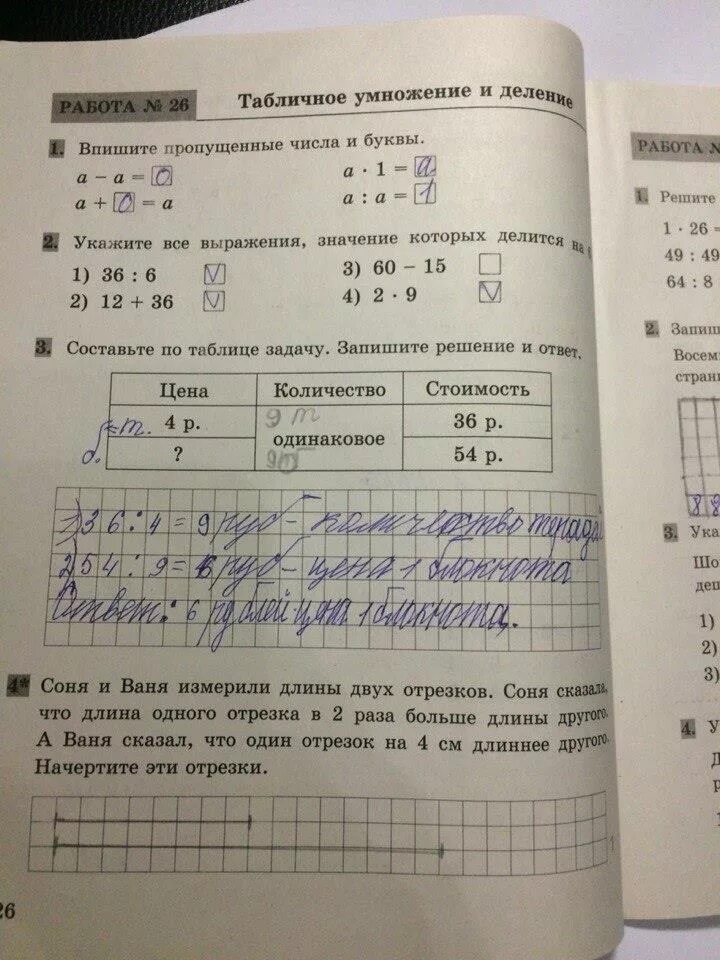 РАБОТА № 26
Табличное умножение и деление
1. Впишите пропущенные числа и буквы.
a − a = 0
a · 1 = a
a + 0 = a
a : a = 1
2. Укажите все выражения, значение которых делится на
1) 36 : 6 V
3) 60 − 15
2) 12 + 36 V
4) 2 · 9 V
3. Составьте по таблице задачу. Запишите решение и ответ.
Цена Количество Стоимость
т. 4 р. 9 т 36 р.
одинаковое
б. ? 9б 54 р.
36 : 4 = 9 руб – количество
2) 54 : 9 = 6 руб – цена 1 блокнота
Ответ: 6 рублей цена 1 блокнота.
4* Соня и Ваня измерили длины двух отрезков. Соня сказала,
что длина одного отрезка в 2 раза больше длины другого.
А Ваня сказал, что один отрезок на 4 см длиннее другого.
Начертите эти отрезки.
26
РАБОТА №
1. Решите
1 · 26 =
49 : 49
64 : 8
2. Запиш
Восем
страни
8 8
3. Ука
Шо
деп
1)
2)
3)
4. У